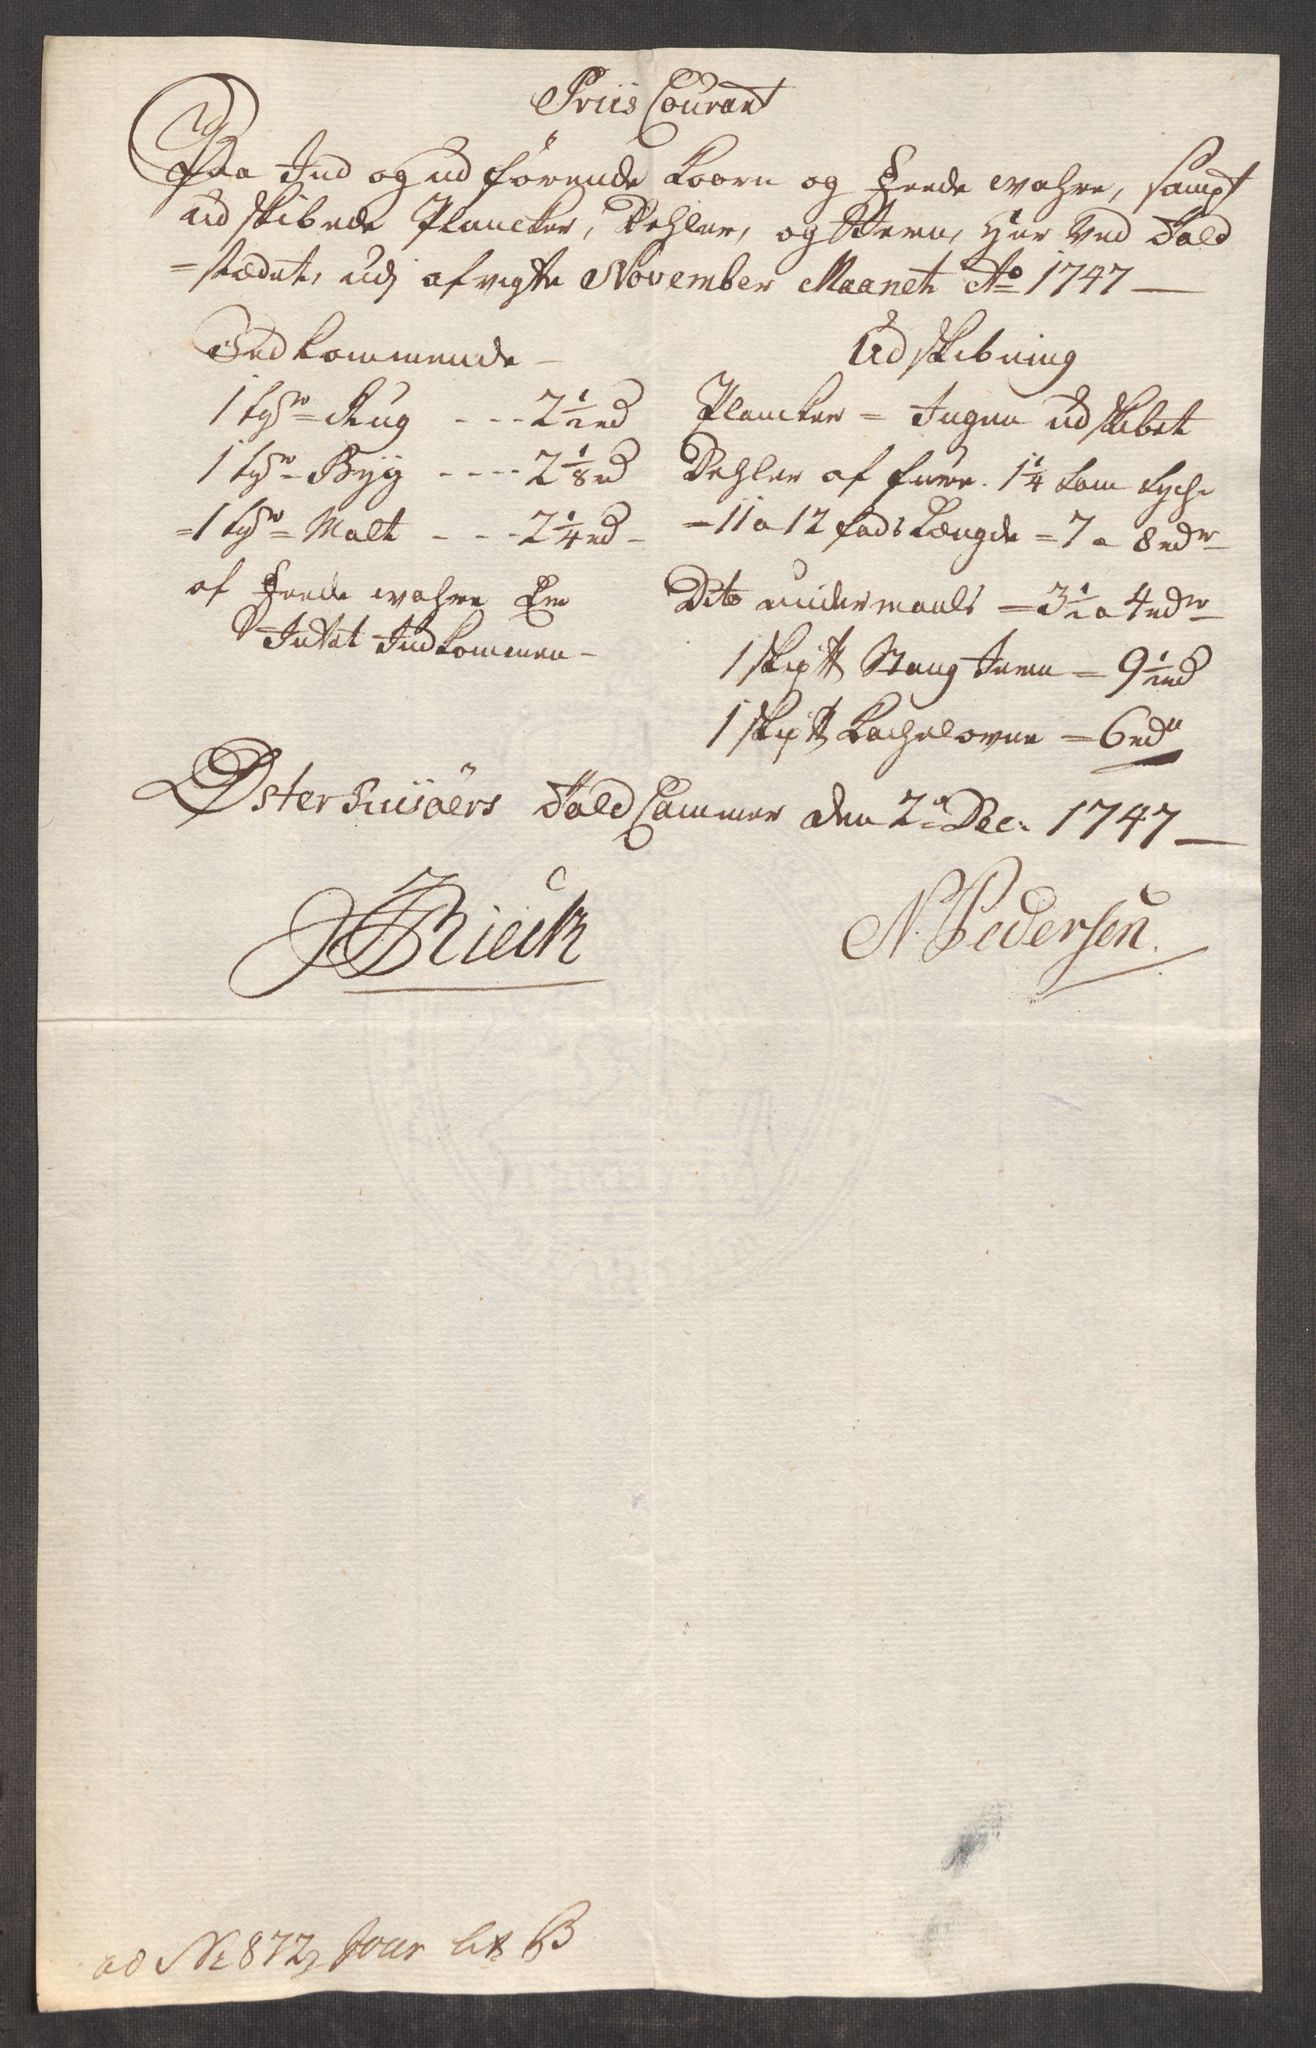 Priis Courant
Paa Ind og ud förende Koorn og Feede wahre, sampt
udskibede Plancker, Dehler, og Jern, Her ved Told
=stædet, udj afvigte November Maanet Ao 1747 —
Indkommende –
1 tøn= Rug - - - 2 1/2 rd
1 tøn= Byg - - - - 2 1/8 rd
=1 tøn= Malt - - - 2 1/4 rd –
af Feede wahre Er
Intet Indkommen –
Udskibning
Plancker = Ingen udskibet
Dehler af furre 1 1/4 tom tych
= 11 a 12 fods Længde = 7 a 8 rdr
Dito undermaals = 3 1/2 a 4 rdr
1 Skip℔ Stang Jern = 9 1/2 rd
1 Skip℔ Kachelovne = 6 rdr
Øster Riisöers Told Cammer den 2= Dec: 1747 —
Rieck
N. Pedersen.
ad No 872 Jour Lit B